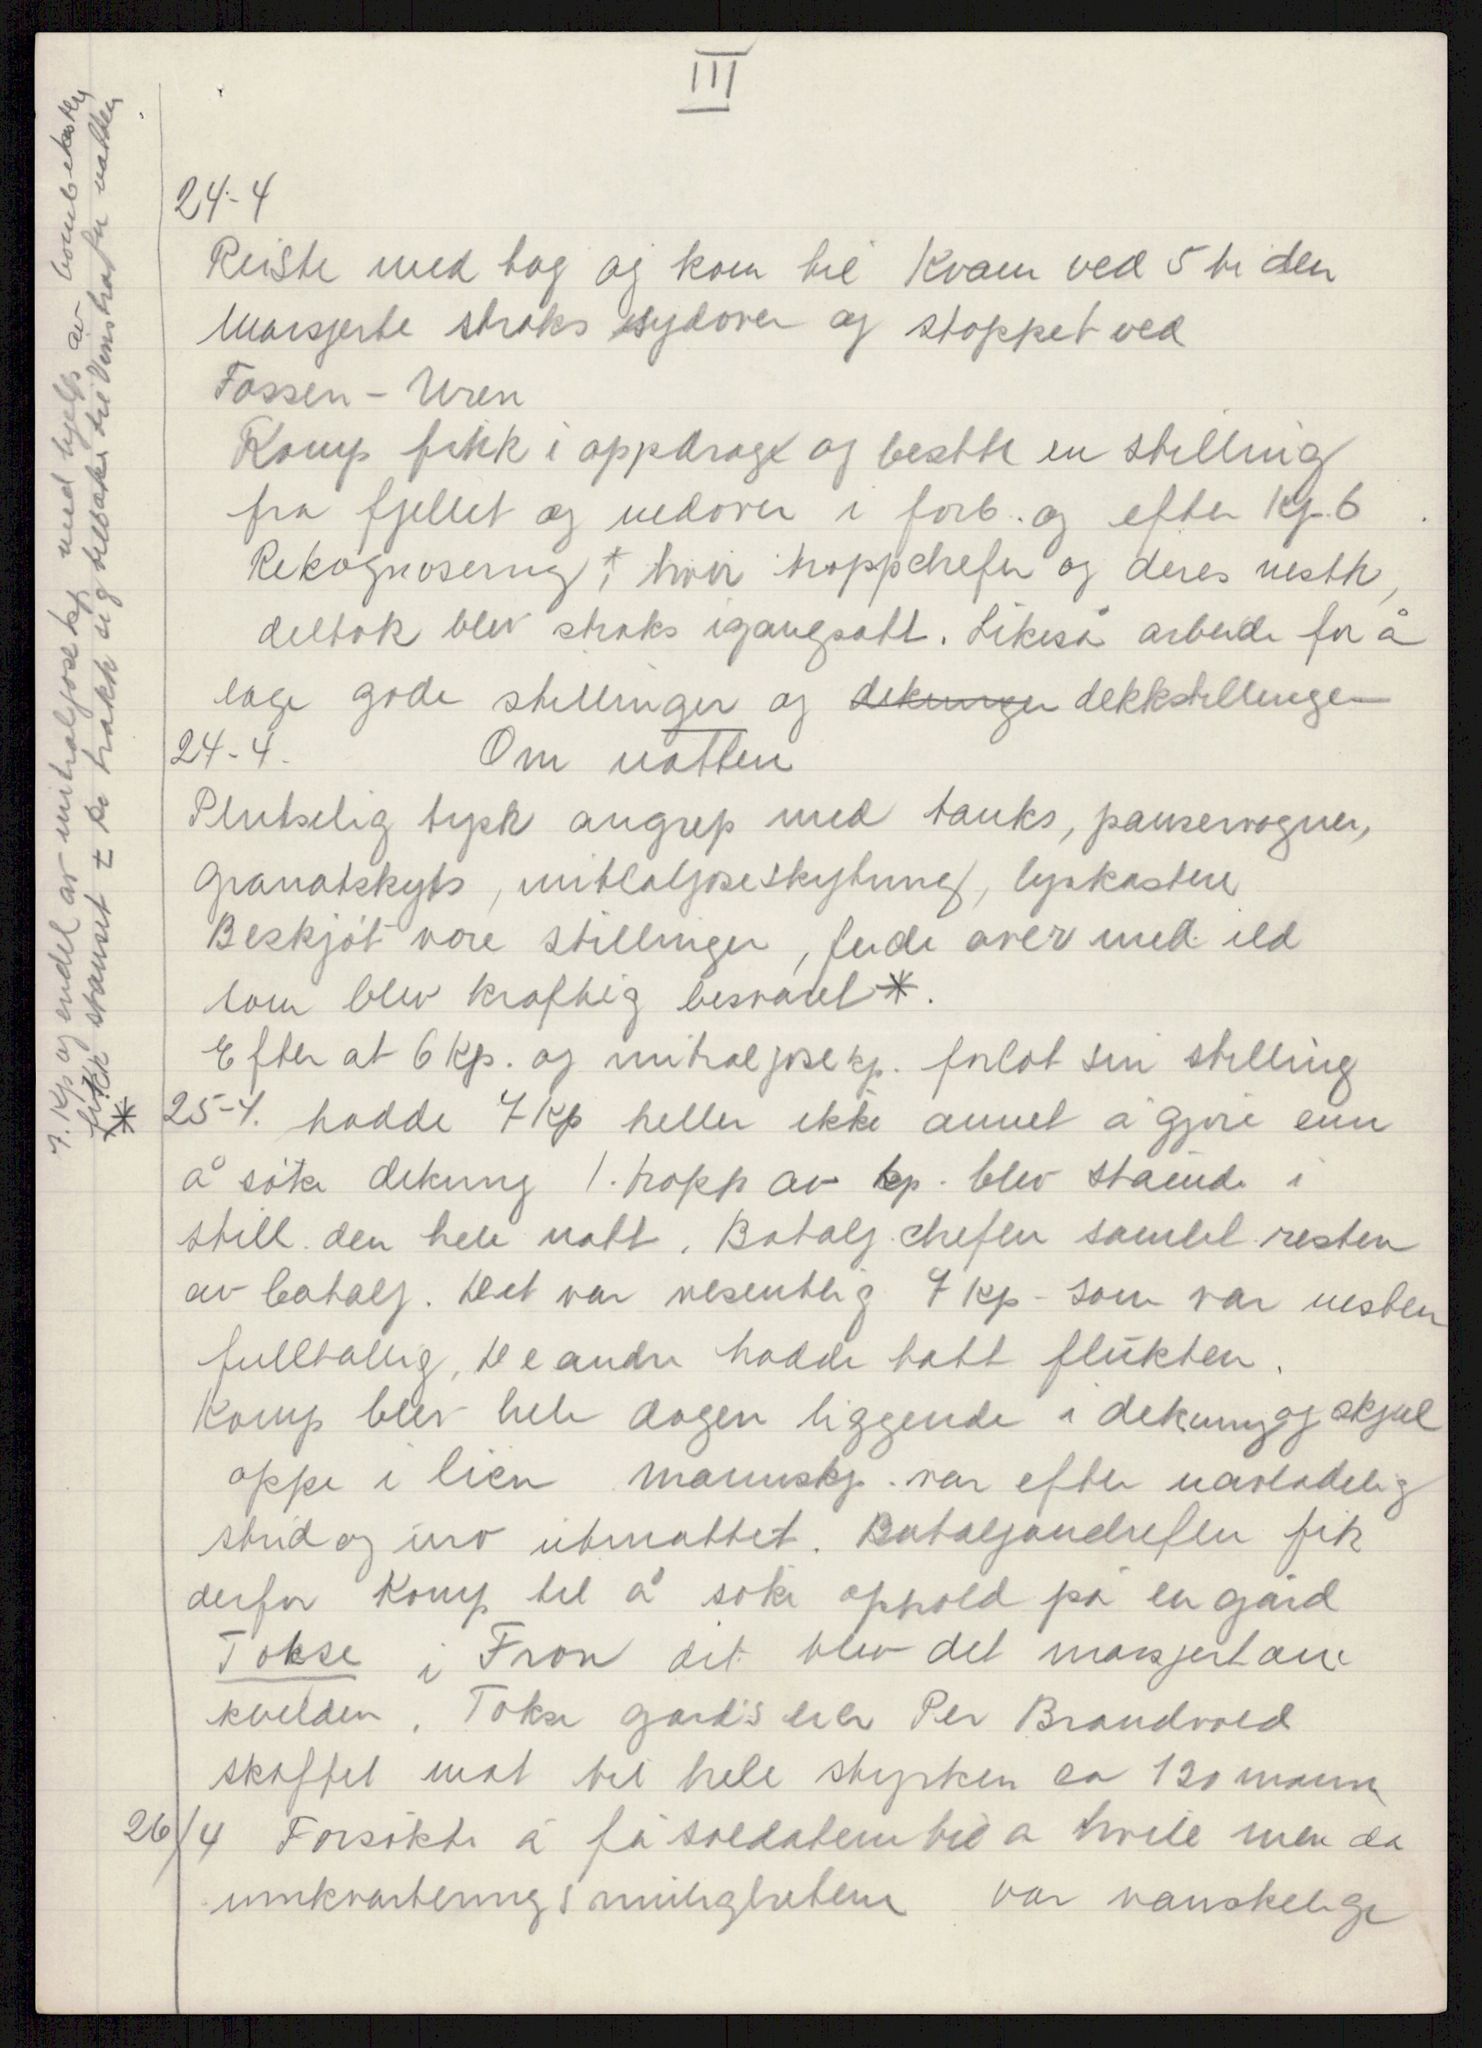 III
24-4
Reiste med tog og kom til Kvam ved 5 tiden
Marsjerte straks sydover og stoppet ved
Fossen - Uren
Komp fikk i oppdrage og besette en stilling
fra fjellet og nedover i forb. og efter Kp. 6
Rekognosering i hvor troppchefer og deres nestk,
deltok blev straks igangsatt. Likeså arbeide for å
lage gode stillinger og dekkstillinger
24-4. Om natten
Plutselig tysk angrep med tanks, panservogner,
granatskyts, mitraljøseskytning, lyskastere
Beskjøt vore stillinger, feide over med ild
som blev kraftig besvaret *.
Efter at 6 Kp. og mitraljøse kp. forlot sin stilling
25-4. hadde 7 Kp heller ikke annet å gjøre enn
å søke dekning 1. tropp av kp. blev stående i
still. den hele natt. Batalj. chefen samlet resten
av batalj. Det var vesentlig 7 kp - som var nesten
fulltallig, De andre hadde tatt flukten.
Komp blev hele dagen liggende i dekning og skjul
oppe i lien mannskp. var efter uavladelig
strid og uro utmattet. Bataljonchefen fik
derfor Komp til å søke opphold på en gård
Tokse i Fron dit blev det marsjert om
kvelden. Tokse gård's eier Per Brandvold
skaffet mat til hele styrken ca 120 mann
26/4 Forsøkte å få soldatene til a hvile men da
innkvarterings mulighetene var vanskelige
7. Kp og endel av mitraljøse kp med hjelp av bombekastere
* fikk stanset de trakk sig tilbake til Vinstra for natten